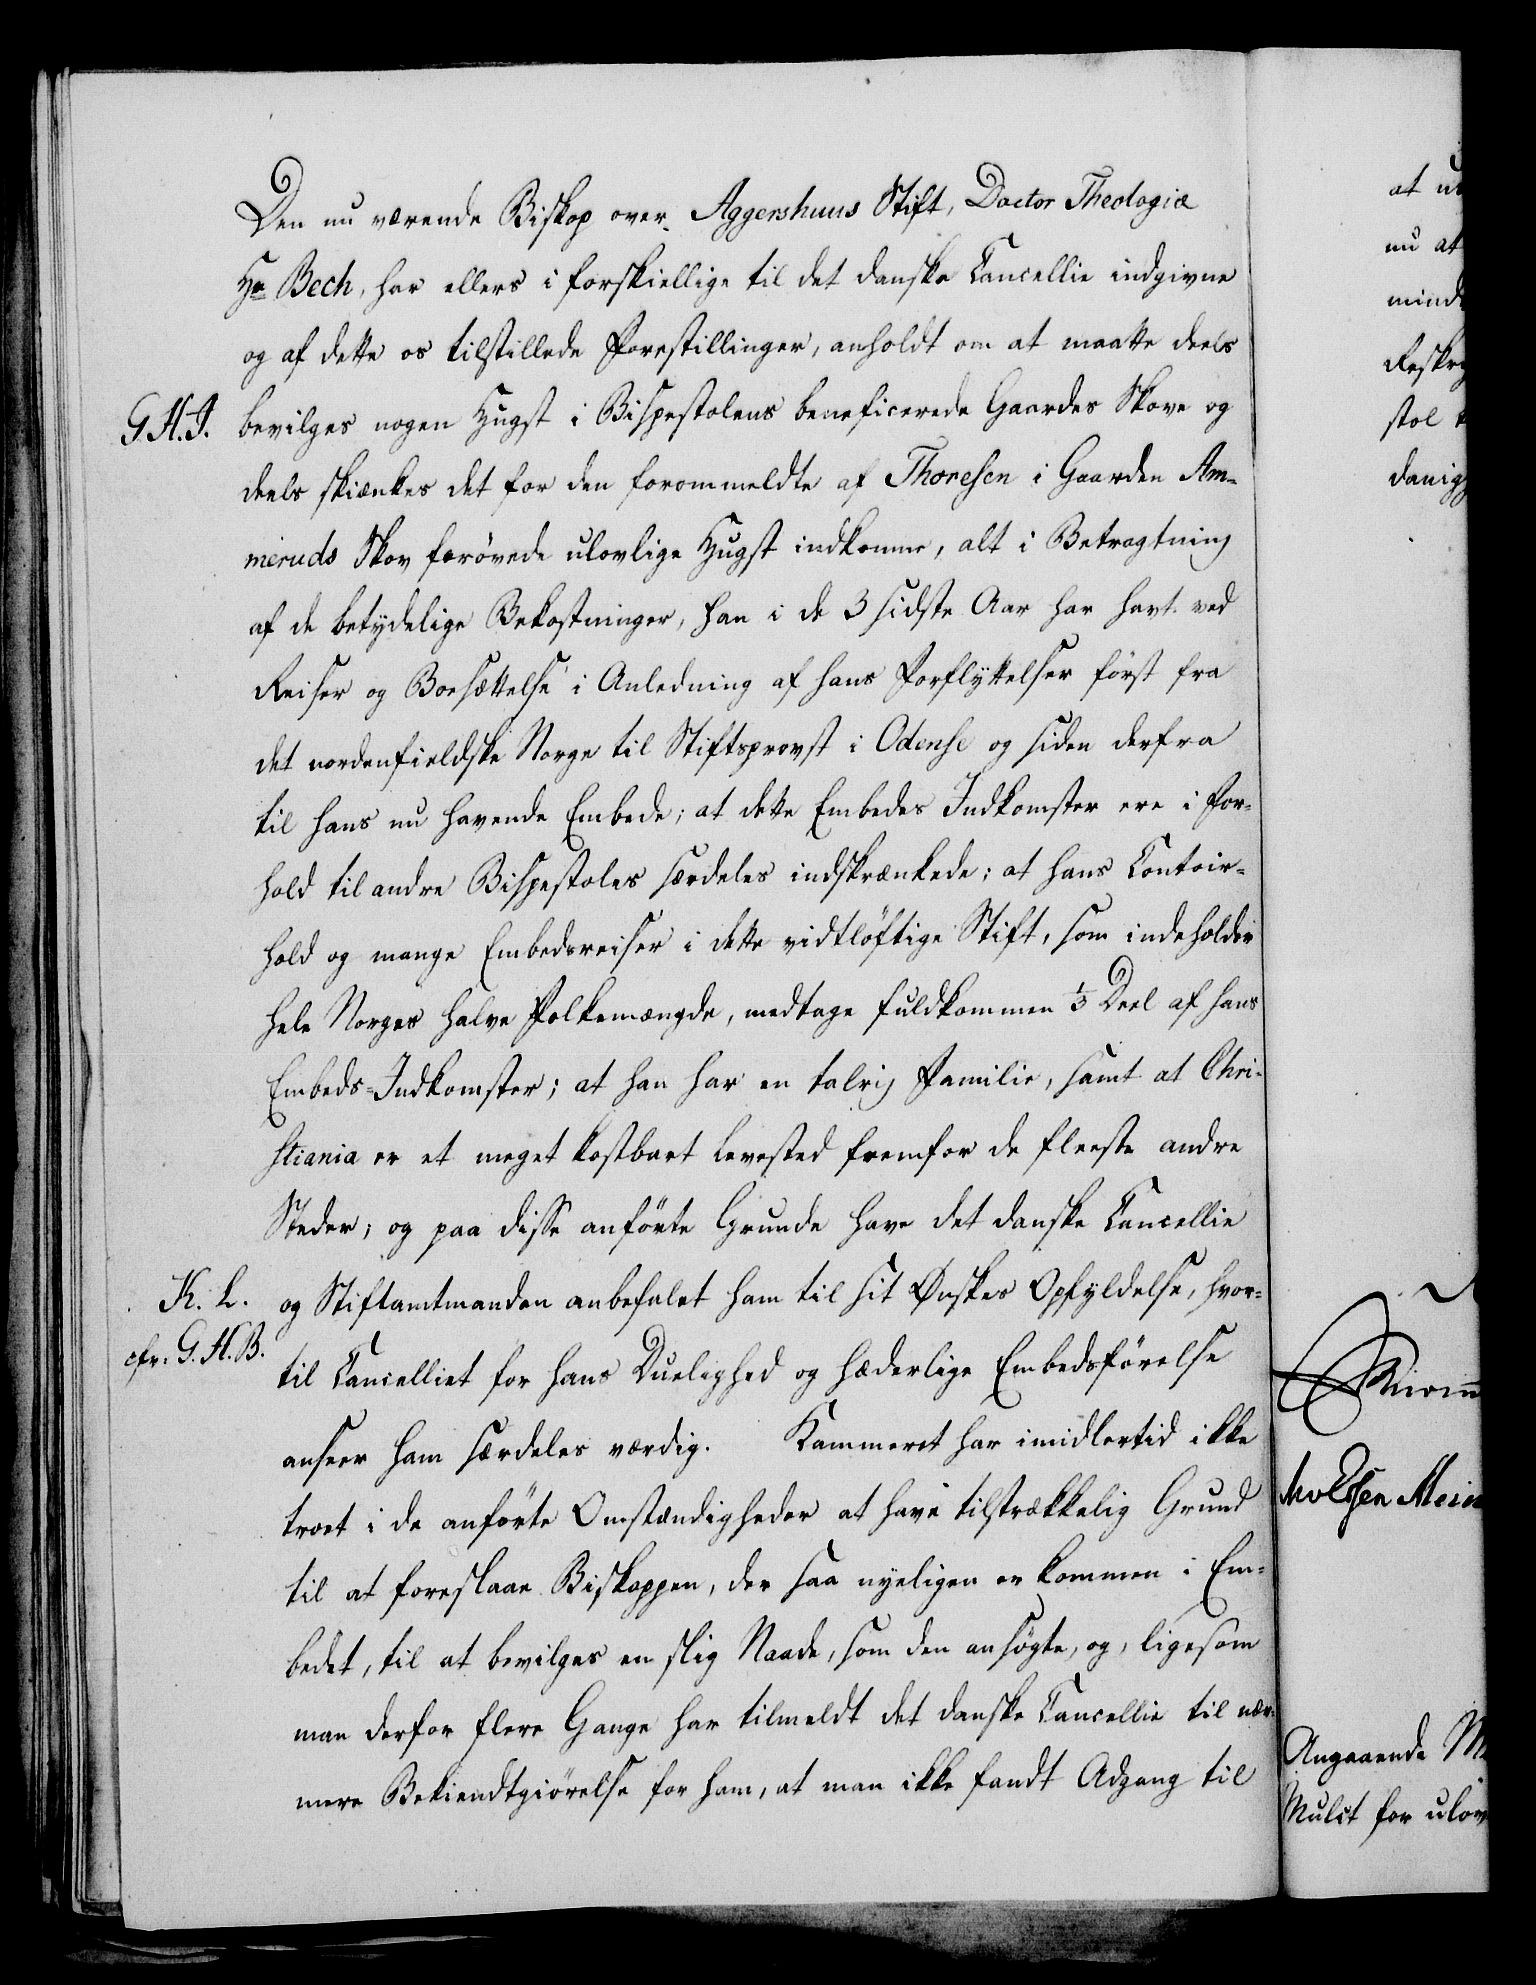 Den nu værende Biskop over Aggershuus Stift, Doctor Theologiæ
Hr Bech, har ellers i forskiellige til det danske Cancellie indgivne
og af dette os tilstillede Forestillinger, anholdt om at maatte deels
G.H.I.
bevilges nogen Hugst i Bispestolens beneficerede Gaardes Skove og
deels skiænkes det for den forommeldte af Thoresen i Gaarden Am-
meruds Skov forövede ulovlige Hugst indkomne, alt i Betragtning
af de betydelige Bekostninger, han i de 3 sidste Aar har havt ved
Reiser og Boesættelse i Anledning af hans Forflyttelser först fra
det nordenfieldske Norge til Stiftsprovst i Odense og siden derfra
til hans nu havende Embede; at dette Embedes Indkomster ere i For-
hold til andre Bispestoles særdeles indskrænkede; at hans Contoir-
hold og mange Embedsreiser i dette vidtlöftige Stift, som indeholder
hele Norges halve Folkemængde, medtage fuldkommen 1/3 Deel af hans
Embeds-Indkomster; at han har en talrig Familie, samt at Chri-
stiania er et meget kostbart Levested fremfor de fleeste andre
Steder; og paa disse anförte Grunde have det danske Cancellie
K. L.
og Stiftamtmanden anbefalet ham til sit Ønskes Opfyldelse, hvor-
cfr. G.H.B.
til Cancelliet for hans Duelighed og hæderlige Embedsförelse
anseer ham særdeles værdig. Kammeret har imidlertid ikke
troet i de anförte Omstændigheder at have tilstrækkelig Grund
til at foreslaae Biskoppen, der saa nyeligen er kommen i Em-
bedet, til at bevilges en slig Naade, som den ansögte, og, ligesom
man derfor flere Gange har tilmeldt det danske Cancellie til nær-
mere Bekiendtgiörelse for ham, at man ikke fandt Adgang til
at
nu at
stol
Angaaende
Mulct for ulov